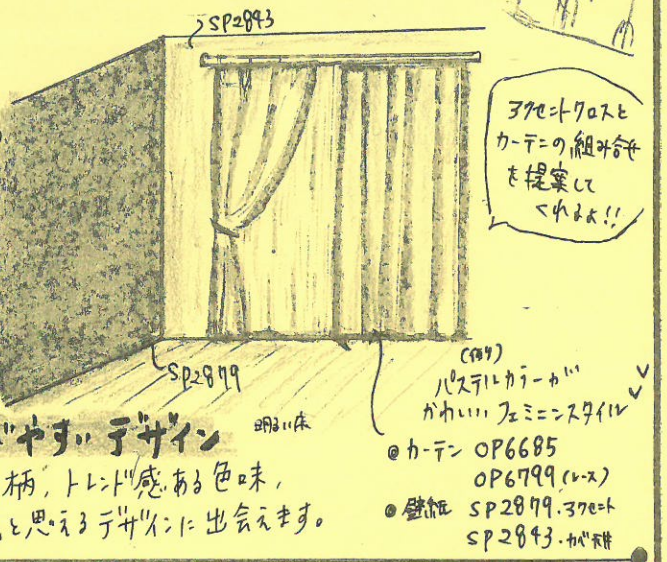 SP2843
アクセントクロスと
カーテンの組み合せ
を提案して
くれるよ!!
SP2879
明るい床
(例)
パステルカラーが
かわいい フェミニンスタイル
やすい デザイン
柄、トレンド感ある色味、
と思えるデザインに出会えます。
@カーテン OP6685
OP6799(レース)
@壁紙 SP2879.アクセント
SP2843.カベ天井